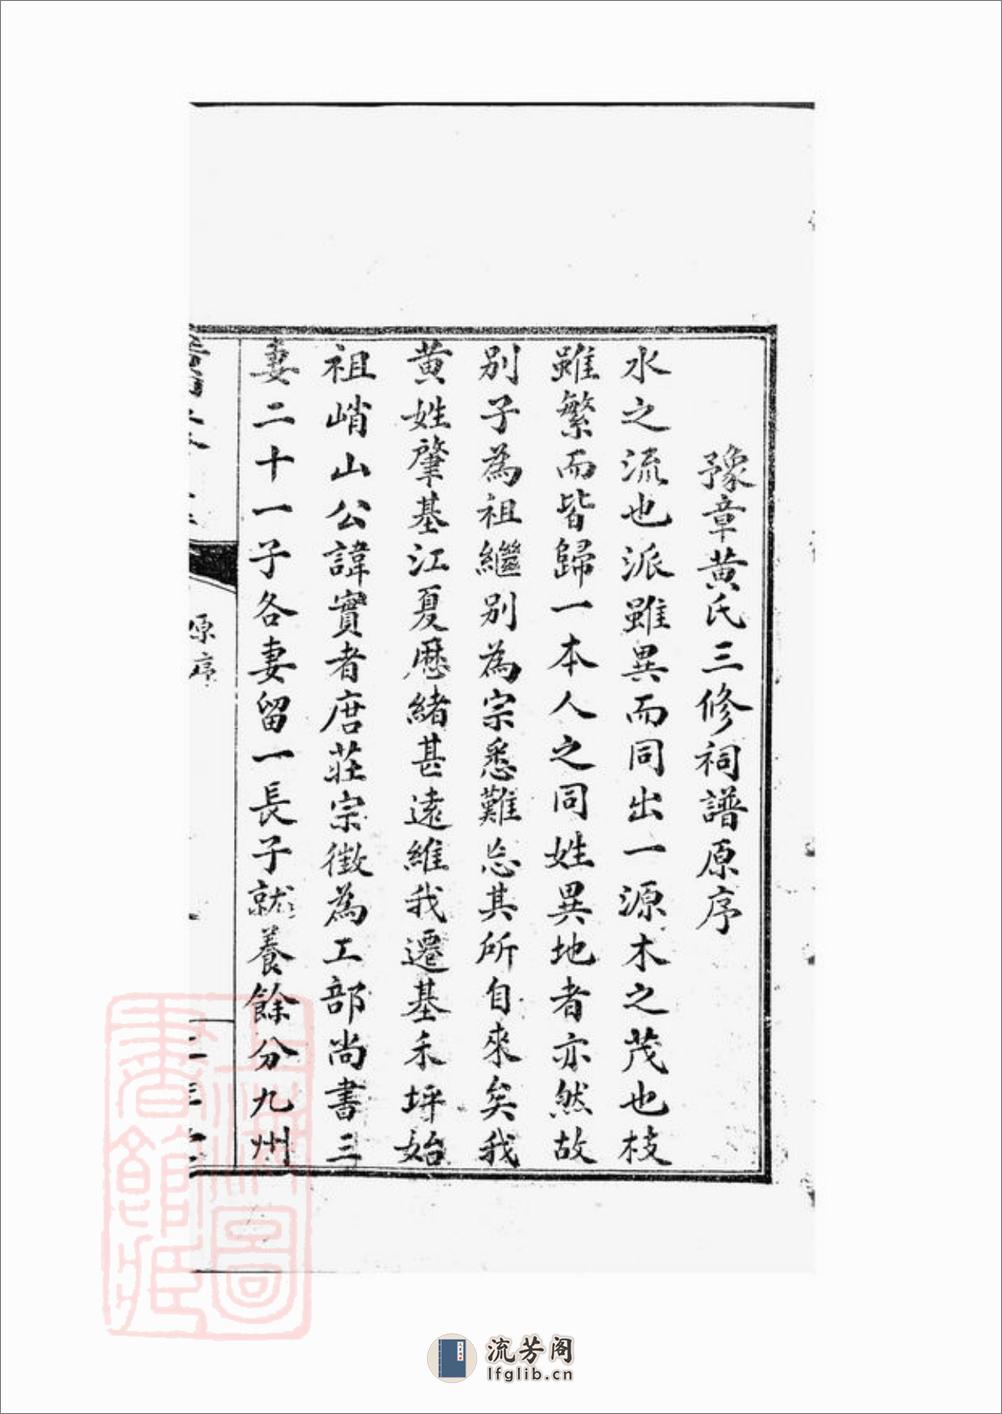 豫章黄氏三修祠譜原序
水之流也派雖異而同出一源木之茂也枝
雖繁而皆歸一本人之同姓異地者亦然故
別子為祖繼別為宗悉難忘其所自來矣我
黄姓肇基江夏厯緒甚遠維我遷基禾坪始
祖峭山公諱實者唐莊宗徵為工部尚書三
妻二十一子各妻留一長子就養餘分九州
原序
圖
書館
流芳阁
lfglib.cn